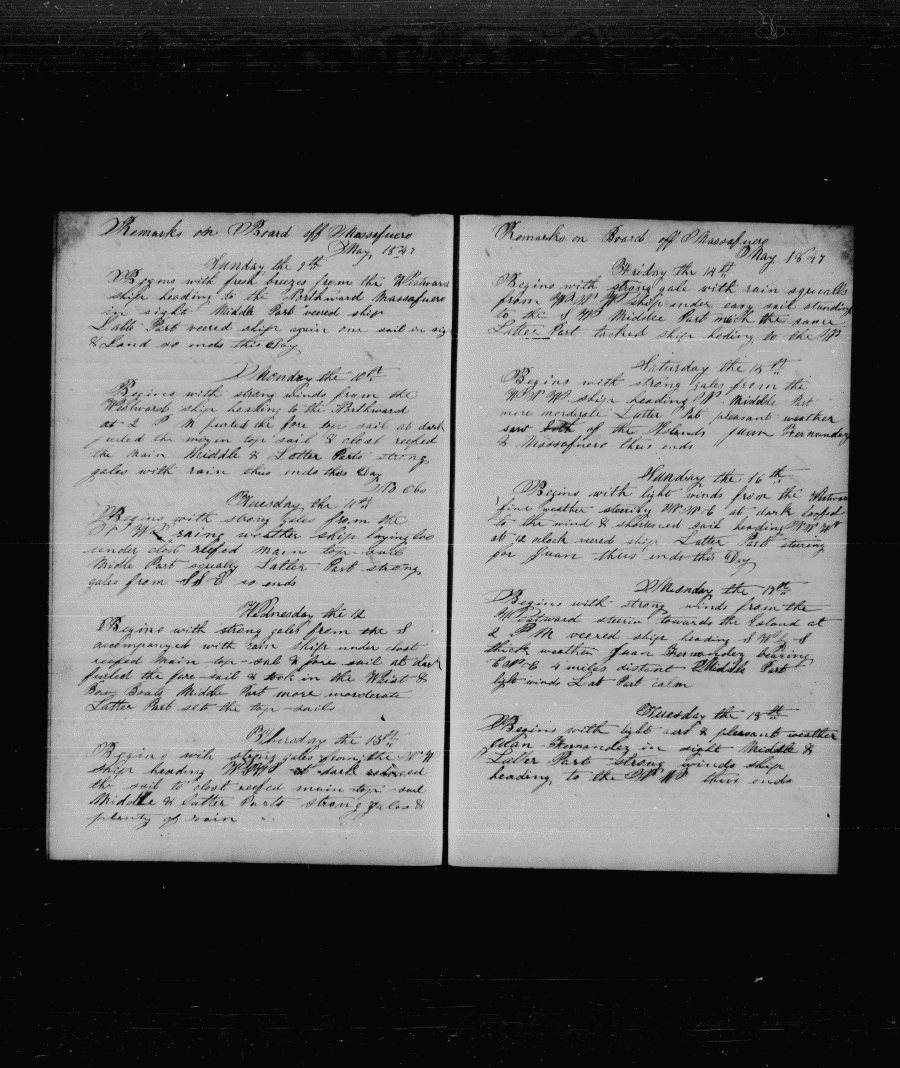 Remarks on Board off Massafuero
May 1847
Sunday the 9th
Begins with fresh breezes from the Westward
ship heading to the Northward Massafuero
in sight Middle Part veered ship
Latte Part veered ship again one sail in sig
& Land so ends this Day
Monday the 10th
Begins with strong winds from the
Westward ship heading to the Northward
at 2 P M furled the fore top sail at dark
furled the mizen top sail & close reefed
the main Middle & Latter Parts strong
gales with rain thus ends this Day
No Obs
Tuesday the 11th
Begins with strong gales from the
raing weather ship laying too
under close reefed main top sail
Midle Part squally Latter Part strong
gales from S S E so ends
Wednesday the 12
Begins with strong gales from the S
accompanyed with rain ship under close
reefed main top-sail & fore sail at dark
furled the fore-sail & took in the Waist &
Bow Boats Middle Part more morderate
Latter Part set the top-sails
Thursday the 13th
Begins with strong gales from the N W
ship heading at dark reduced
the sail to close reefed main top-sail
Middle & latter Parts strong gales &
plenty of rain
Remarks on Board off Massafuero
May 1847
Friday the 14th
Begins with strong gale with rain squealls
from W N W ship under easy sail standing
to the S W Middle Part much the same
Latter Part tacked ship heding to the
Saturday the 15th
Begins with strong gales from the
W N W ship heading N Middle Part
more morderate Latter Pat pleasant weather
saw both of the Islands Juan Fernandez
& Massafuero thus ends
Sunday the 16th
Begins with light winds from the Westward
fine weather steering N N E at dark loofed
to the wind & shortened sail heading
at 12 oclock veered ship Latter Part steering
for Juan thus ends this Day
Monday the 17th
Begins with strong winds from the
Westward steerin towards the Island at
2 P M veered ship heading S W by S
thick weather Juan Fernandez bearing
E N E 4 miles distant Middle Part
light winds Lat Part calm
Tuesday the 18th
Begins with light airs & pleasant weather
Juan Fernandez in sight Middle &
Latter Part strong winds ship
heading to the N W thus ends